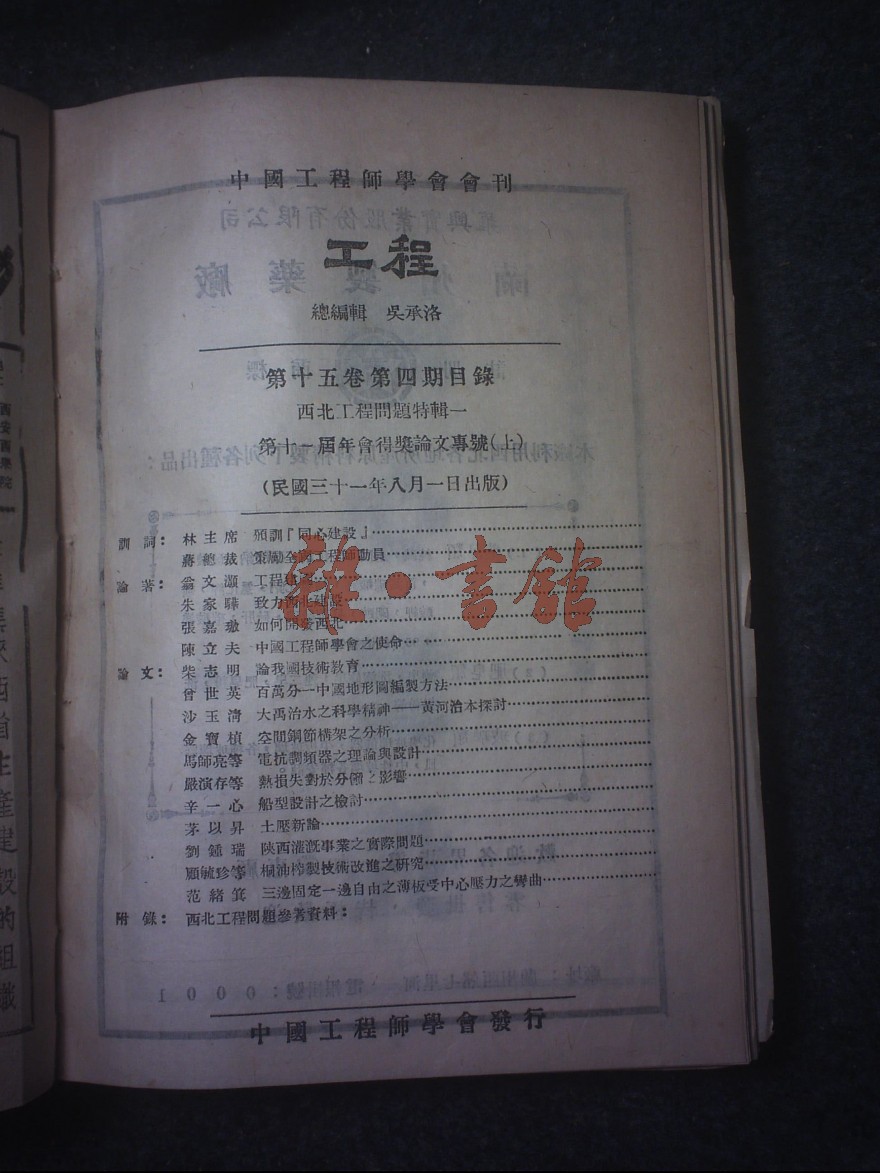 中國工程師學會會刊
工程
總編輯 吳承洛
第十五卷第四期目錄
西北工程問題特輯一
第十一屆年會得獎論文專號(上)
(民國三十一年八月一日出版)
訓詞: 林主席 頒訓『同心建設』
蔣總裁 策勵全國工程師動員
論著: 翁文灝 工程
朱家驊 致力西北建設
張嘉璈 如何開發西北
陳立夫 中國工程師學會之使命
論文: 柴志明 論我國技術教育
曾世英 百萬分一中國地形圖編製方法
沙玉清 大禹治水之科學精神——黃河治本探討
金寶楨 空間鋼節構架之分析
馬師亮等 電抗調頻器之理論與設計
嚴演存等 熱損失對於分餾之影響
辛一心 船型設計之檢討
茅以昇 土壓新論
劉鍾瑞 陝西灌漑事業之實際問題
顧毓珍等 桐油榨製技術改進之研究
范緒箕 三邊固定一邊自由之薄板受中心壓力之彎曲
附錄: 西北工程問題參考資料:
中國工程師學會發行
雜·書館
陝西省生產建設的組織